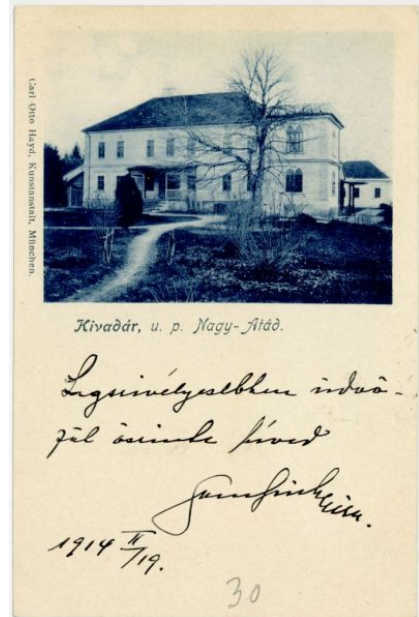 Carl Otto Hayd, Kunstanstalt, München.
Kivadár, u. p. Nagy-Atád.
Legszivélyesebben üdvö-
zül őszinte hived
1914 II/19.
30